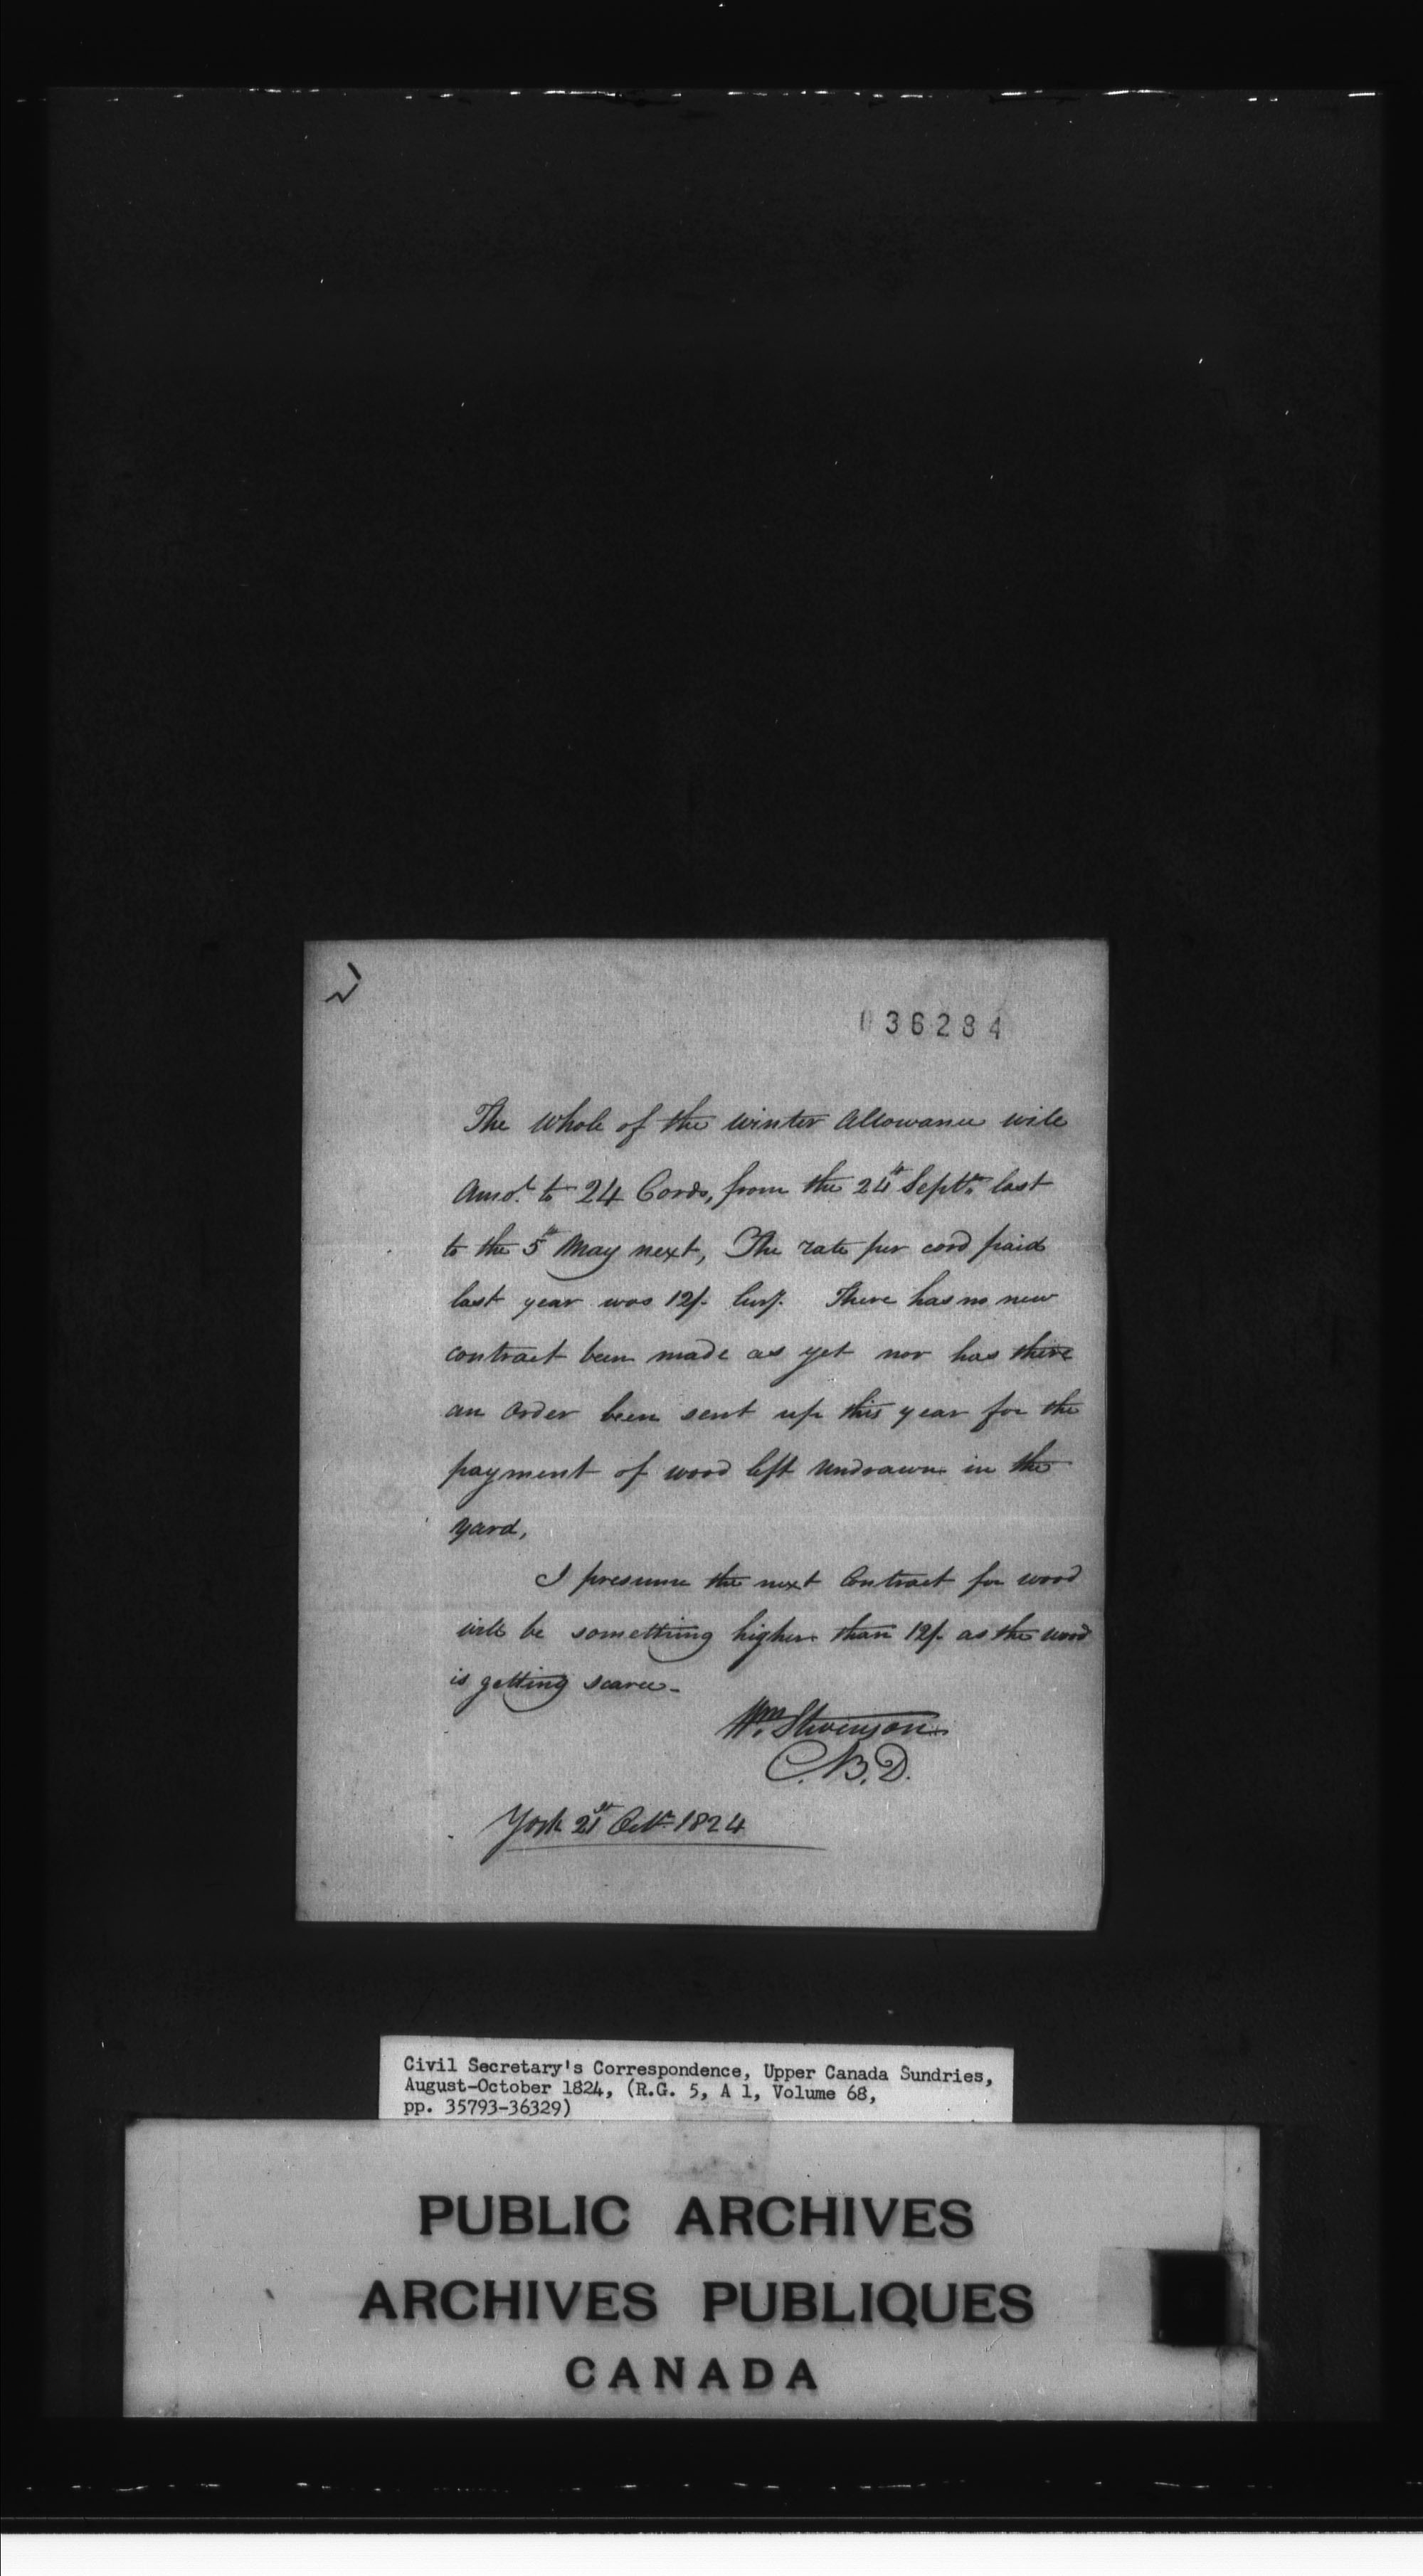 036284
The whole of the winter Allowance will
Amot. to 24 Cords, from the 24th Septr. last
to the 5th May next, The rate per cord paid
last year was 12/- Curr. There has no new
contract been made as yet nor has there
an order been sent up this year for the
payment of wood left undrawn in the
yard,
I presume the next Contract for wood
will be something higher than 12/- as the wood
is getting scarce -
Wm. Stevenson
C.B.D.
York 21st Octr. 1824
Civil Secretary's Correspondence, Upper Canada Sundries,
August-October 1824, (R.G. 5, A 1, Volume 68,
pp. 35793-36329)
PUBLIC ARCHIVES
ARCHIVES PUBLIQUES
CANADA